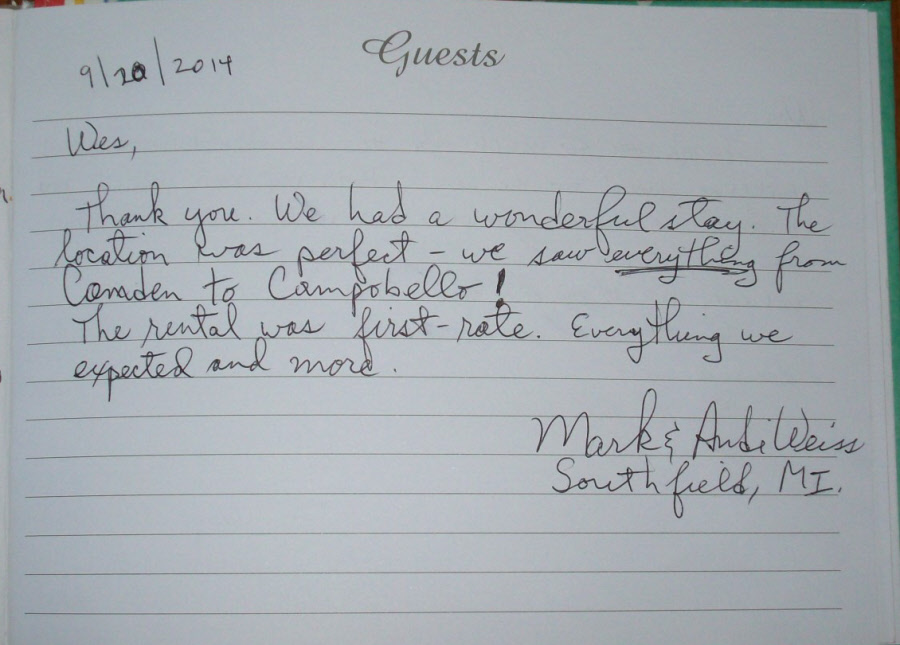 Guests
9/20/2014
Wes,
Thank you. We had a wonderful stay. The
location was perfect - we saw everything from
Camden to Campobello!
The rental was first-rate. Everything we
expected and more.
Mark & Andi Weiss
Southfield, MI.